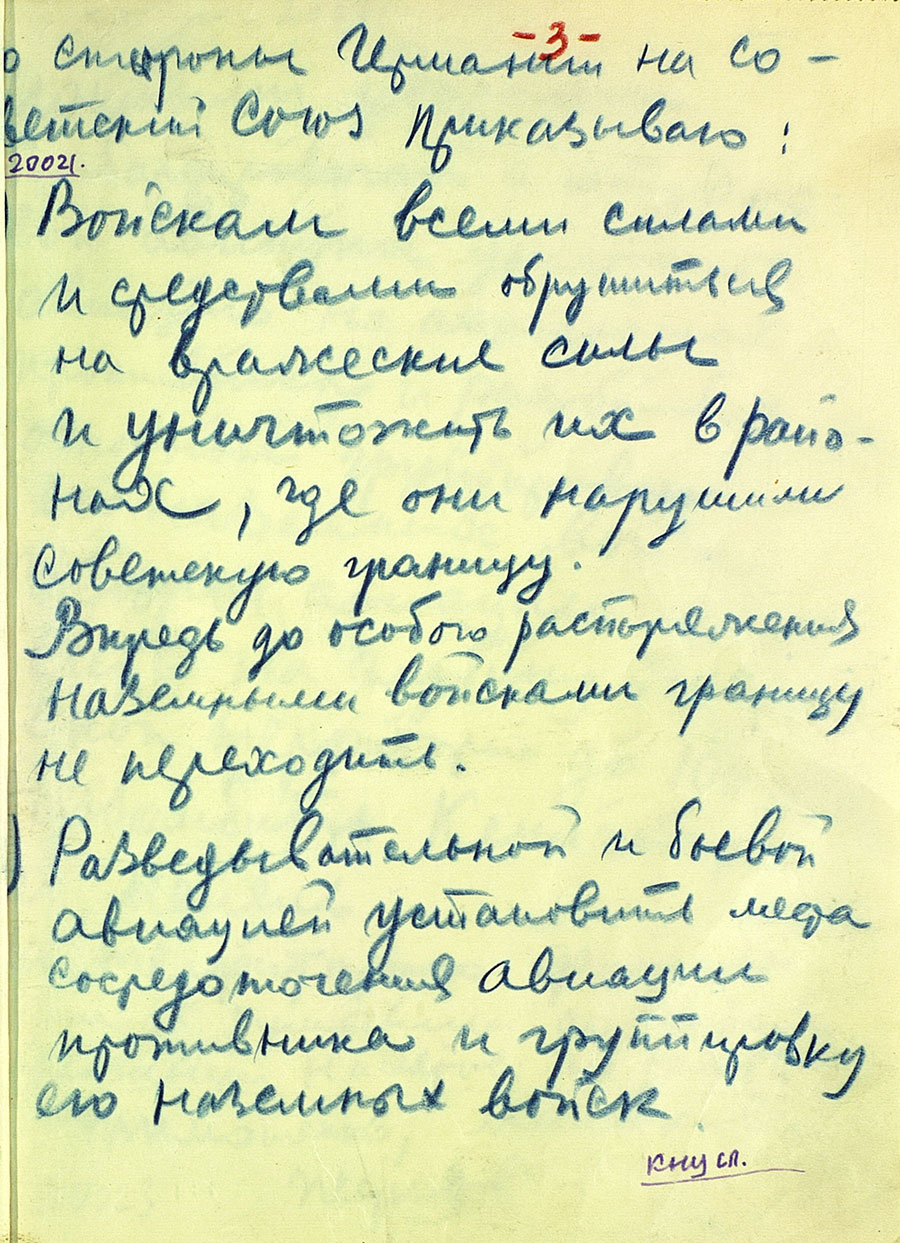 -3-
о стороны Германии на Со-
ветский Союз приказываю:
20021.
Войскам всеми силами
и средствами обрушиться
на вражеские силы
и уничтожить их в райо-
нах, где они нарушили
советскую границу.
Впредь до особого распоряжения
наземными войсками границу
не переходить.
) Разведывательной и боевой
авиацией установить места
сосредоточения авиации
противника и группировку
его наземных войск
сл.